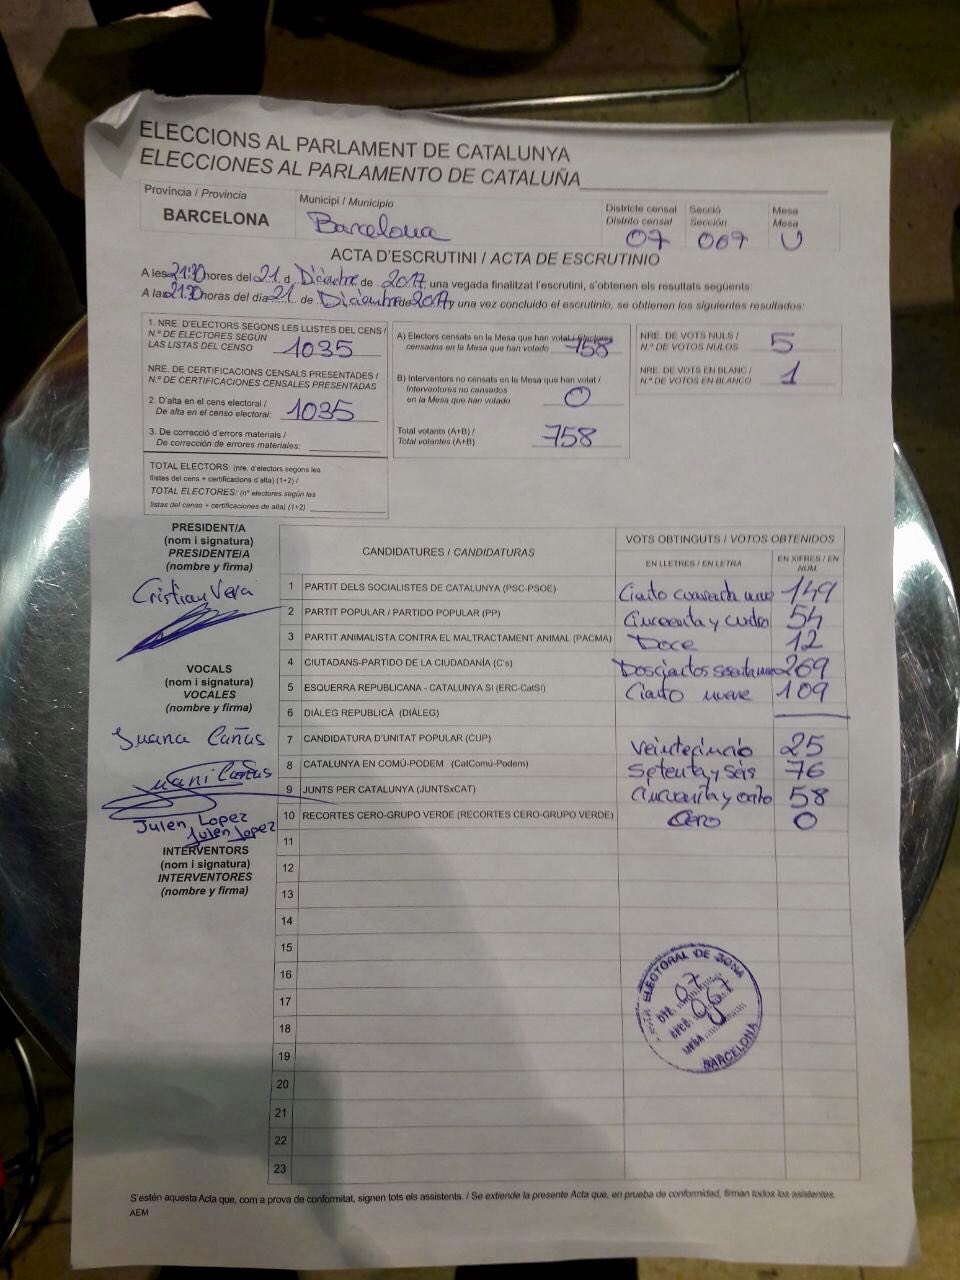 ELECCIONS AL PARLAMENT DE CATALUNYA
ELECCIONES AL PARLAMENTO DE CATALUÑA
Província / Provincia
BARCELONA
Municipi / Municipio
Barcelona
Districte censal
Distrito censal
07
Secció
Sección
067
Mesa
Mesa
U
ACTA D'ESCRUTINI / ACTA DE ESCRUTINIO
A les 21:30 hores del 21 d Diciembre de 2017, una vegada finalitzat l'escrutini, s'obtenen els resultats següents:
A las 21:30 horas del día 21 de Diciembre de 2017 y una vez concluido el escrutinio, se obtienen los siguientes resultados:
1. NRE. D'ELECTORS SEGONS LES LLISTES DEL CENS /
N.º DE ELECTORES SEGÚN
LAS LISTAS DEL CENSO 1035
NRE. DE CERTIFICACIONS CENSALS PRESENTADES /
N.º DE CERTIFICACIONES CENSALES PRESENTADAS
2. D'alta en el cens electoral /
De alta en el censo electoral: 1035
3. De correcció d'errors materials /
De corrección de errores materiales:
TOTAL ELECTORS: (nre. d'electors segons les
llistes del cens + certificacions d'alta) (1+2) /
TOTAL ELECTORES: (nº electores según las
listas del censo + certificaciones de alta) (1+2)
A) Electors censats en la Mesa que han votat / Electores
censados en la Mesa que han votado 758
B) Interventors no censats en la Mesa que han votat /
Interventores no censados
en la Mesa que han votado 0
Total votants (A+B) /
Total votantes (A+B) 758
NRE. DE VOTS NULS /
N.º DE VOTOS NULOS 5
NRE. DE VOTS EN BLANC /
N.º DE VOTOS EN BLANCO 1
PRESIDENT/A
(nom i signatura)
PRESIDENTE/A
(nombre y firma)
Cristian Vera
VOCALS
(nom i signatura)
VOCALES
(nombre y firma)
Juana Cañas
Juani Cañas
Julen Lopez
Julen Lopez
INTERVENTORS
(nom i signatura)
INTERVENTORES
(nombre y firma)
CANDIDATURES / CANDIDATURAS
VOTS OBTINGUTS / VOTOS OBTENIDOS
EN LLETRES / EN LETRA
EN XIFRES / EN NUM.
1 PARTIT DELS SOCIALISTES DE CATALUNYA (PSC-PSOE) Ciento cuarenta nueve 149
2 PARTIT POPULAR / PARTIDO POPULAR (PP) Cincuenta y cuatro 54
3 PARTIT ANIMALISTA CONTRA EL MALTRACTAMENT ANIMAL (PACMA) Doce 12
4 CIUTADANS-PARTIDO DE LA CIUDADANÍA (C's) Doscientos sesenta nueve 269
5 ESQUERRA REPUBLICANA - CATALUNYA SI (ERC-CatSI) Ciento nueve 109
6 DIÀLEG REPUBLICÀ (DIÀLEG)
7 CANDIDATURA D'UNITAT POPULAR (CUP) Veinticinco 25
8 CATALUNYA EN COMÚ-PODEM (CatComú-Podem) Setenta y seis 76
9 JUNTS PER CATALUNYA (JUNTSxCAT) Cincuenta y ocho 58
10 RECORTES CERO-GRUPO VERDE (RECORTES CERO-GRUPO VERDE) Cero 0
11
12
13
14
15
16
17
18
19
20
21
22
23
ELECTORAL DE ZONA
DTE. 07
SECC. 067
MESA
BARCELONA
S'estén aquesta Acta que, com a prova de conformitat, signen tots els assistents. / Se extiende la presente Acta que, en prueba de conformidad, firman todos los asistentes.
AEM